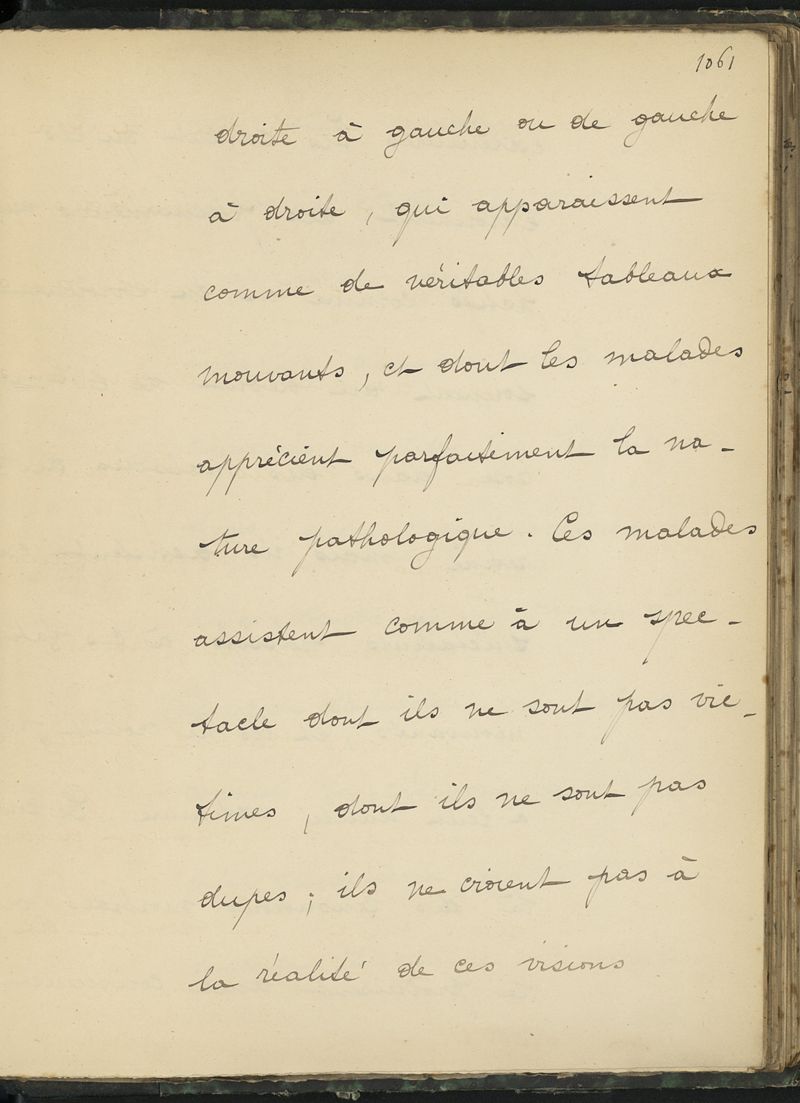 1061
droite à gauche ou de gauche
à droite, qui apparaissent
comme de véritables tableaux
mouvants, et dont les malades
apprécient parfaitement la na-
ture pathologique. Ces malades
assistent comme à un spec-
tacle dont ils ne sont pas vic-
times, dont ils ne sont pas
dupes; ils ne croient pas à
la réalité de ces visions